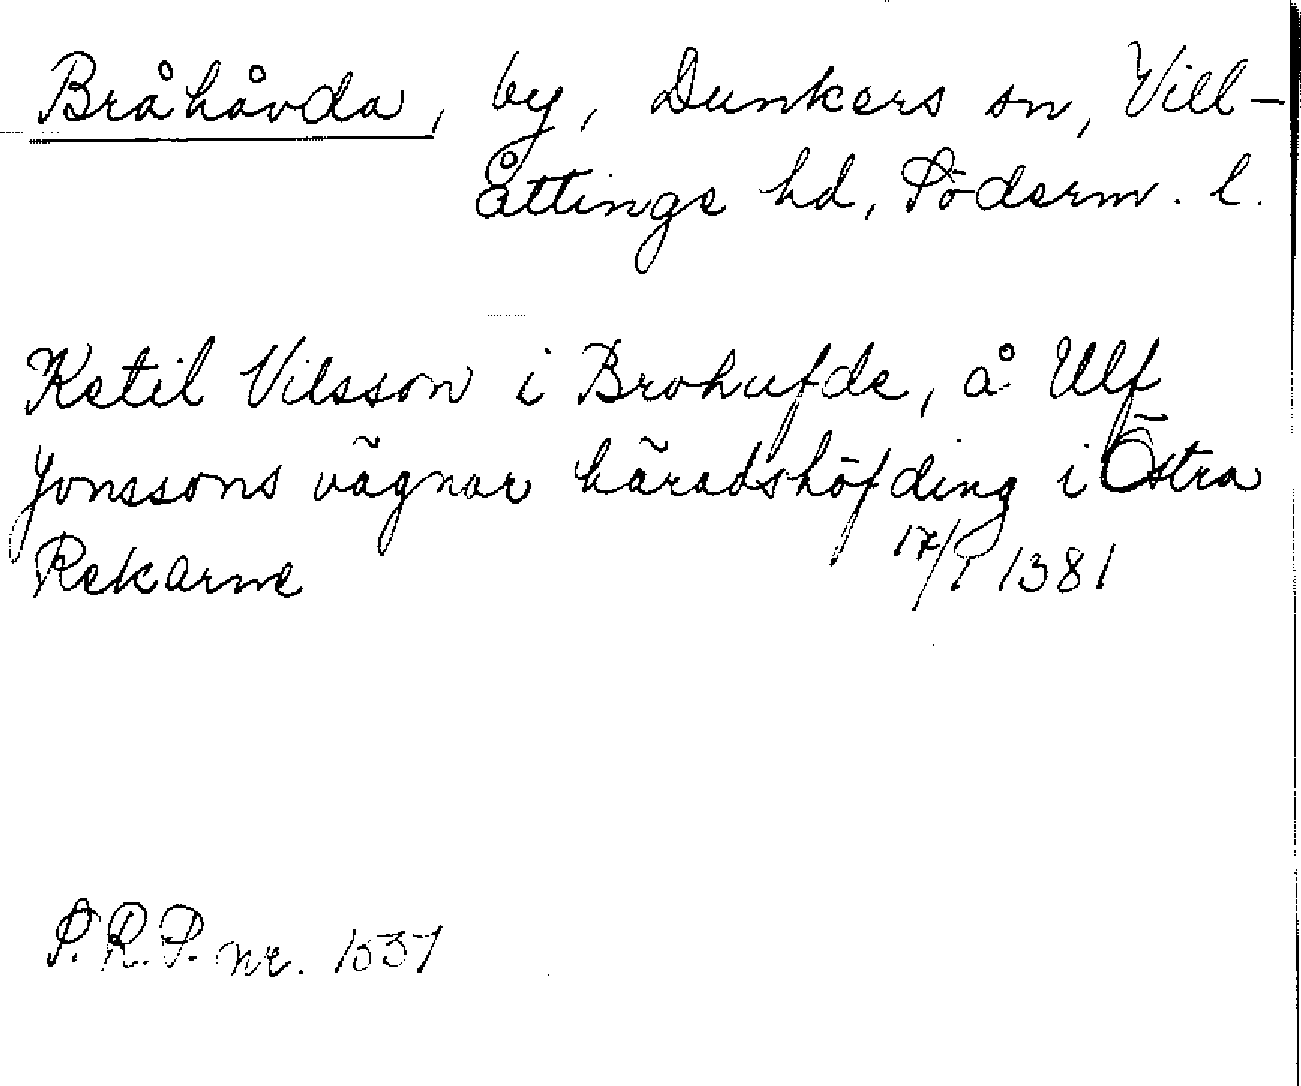 Bråhåvda, by, Dunkers sn, Vill-
åttinge hd, Söderm. l.
Ketil Vilsson i Brohufde, å Ulf
Jonssons vägnar häradshöfding i Östra
Rekarne 17/1 1381
S.R.P. nr. 1537